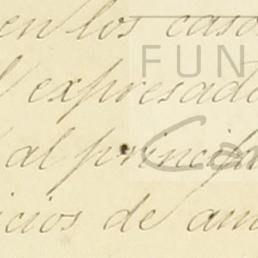 en los casos
expresado
al principa
icios de am
FUN
Con